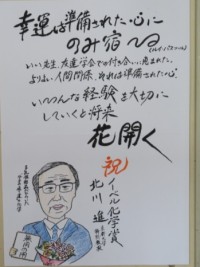 幸運は準備された心に
のみ宿る (ルイパスツール)
いい先生、友達、学会での付き合い…恵まれた。
よりよい人間関係、それは準備された心。
いろんな経験を大切に
していくと将来
花開く
祝
ノーベル化学賞
北川 進